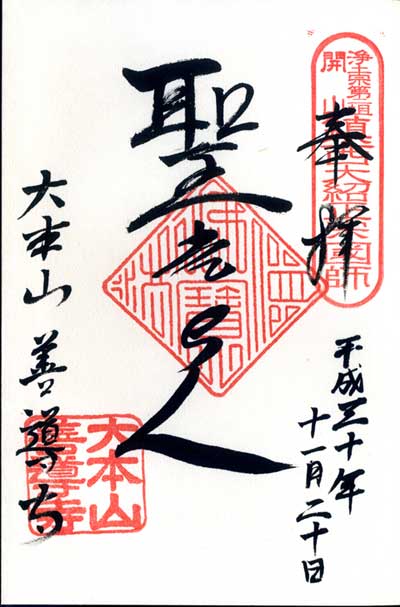 浄土宗第二祖
開山
大紹正宗國師
奉拝
平成三十年
十一月二十日
聖光上人
大本山 善導寺
大本山
善導寺